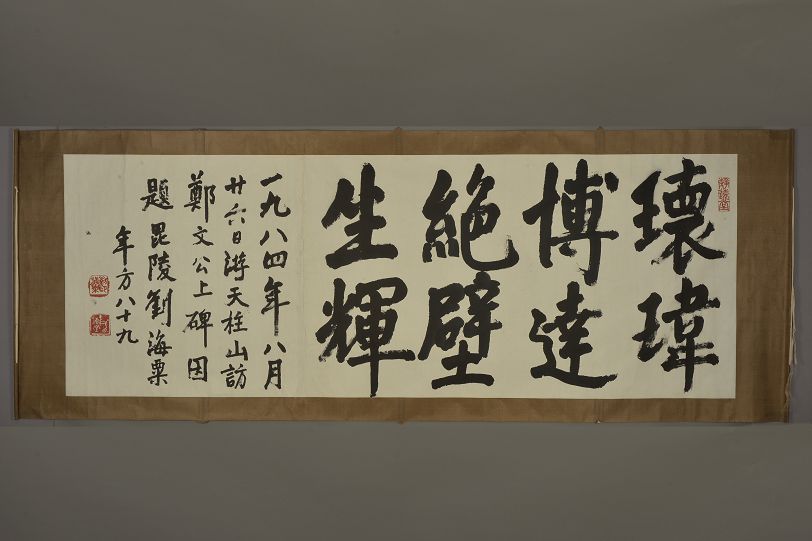 瓌瑋
博達
絶壁
生輝
一九八四年八月
廿六日游天柱山訪
鄭文公上碑因
題毘陵劉海粟
年方八十九